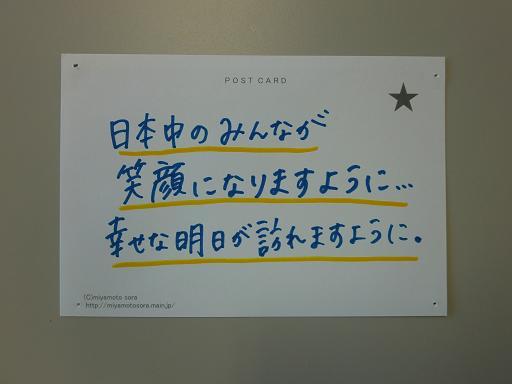 POST CARD
日本中のみんなが
笑顔になりますように…
幸せな明日が訪れますように。
(C)miyamoto sora
http://miyamotosora.main.jp/